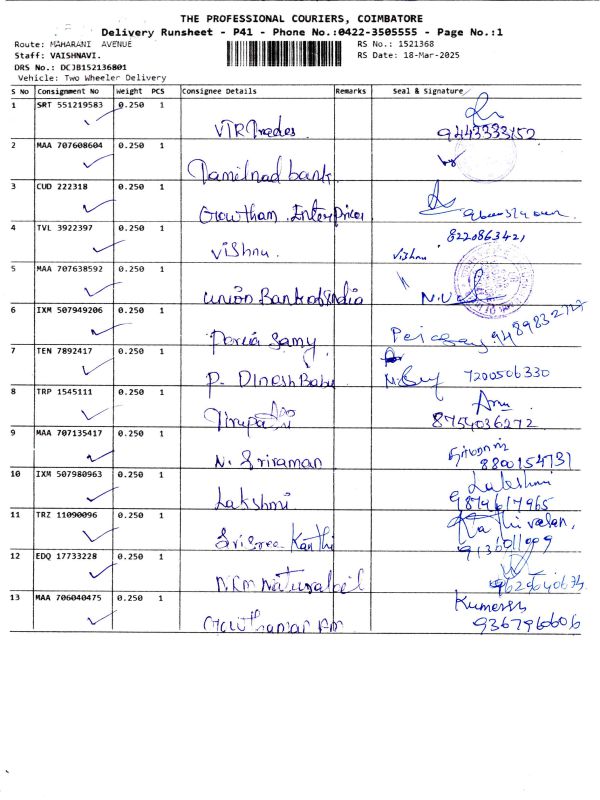 THE PROFESSIONAL COURIERS, COIMBATORE
Delivery Runsheet - P41 - Phone No.:0422-3505555 - Page No.:1
Route: MAHARANI AVENUE
RS No.: 1521368
Staff: VAISHNAVI.
RS Date: 18-Mar-2025
DRS No.: DCJB152136801
Vehicle: Two Wheeler Delivery
S No Consignment No Weight PCS Consignee Details Remarks Seal & Signature
1 SRT 551219583 0.250 1
VTR Trades 9443333152
2 MAA 707608604 0.250 1
Tamilnad bank
3 CUD 222318 0.250 1
Gowtham Enterprices
4 TVL 3922397 0.250 1 8220863421
Vishnu. Vishnu
5 MAA 707638592 0.250 1
union Bank of India
6 IXM 507949206 0.250 1
Samy
7 TEN 7892417 0.250 1
P. Dinesh Babu 7200506330
8 TRP 1545111 0.250 1
8754036272
9 MAA 707135417 0.250 1
N. Sriraman 8800154731
10 IXM 507980963 0.250 1 Lakshmi
Lakshmi 9874617965
11 TRZ 11090096 0.250 1 Kathivelan,
Sri Sree Kanthi 9136011009
12 EDQ 17733228 0.250 1
9629640634
13 MAA 706040475 0.250 1
9367960606